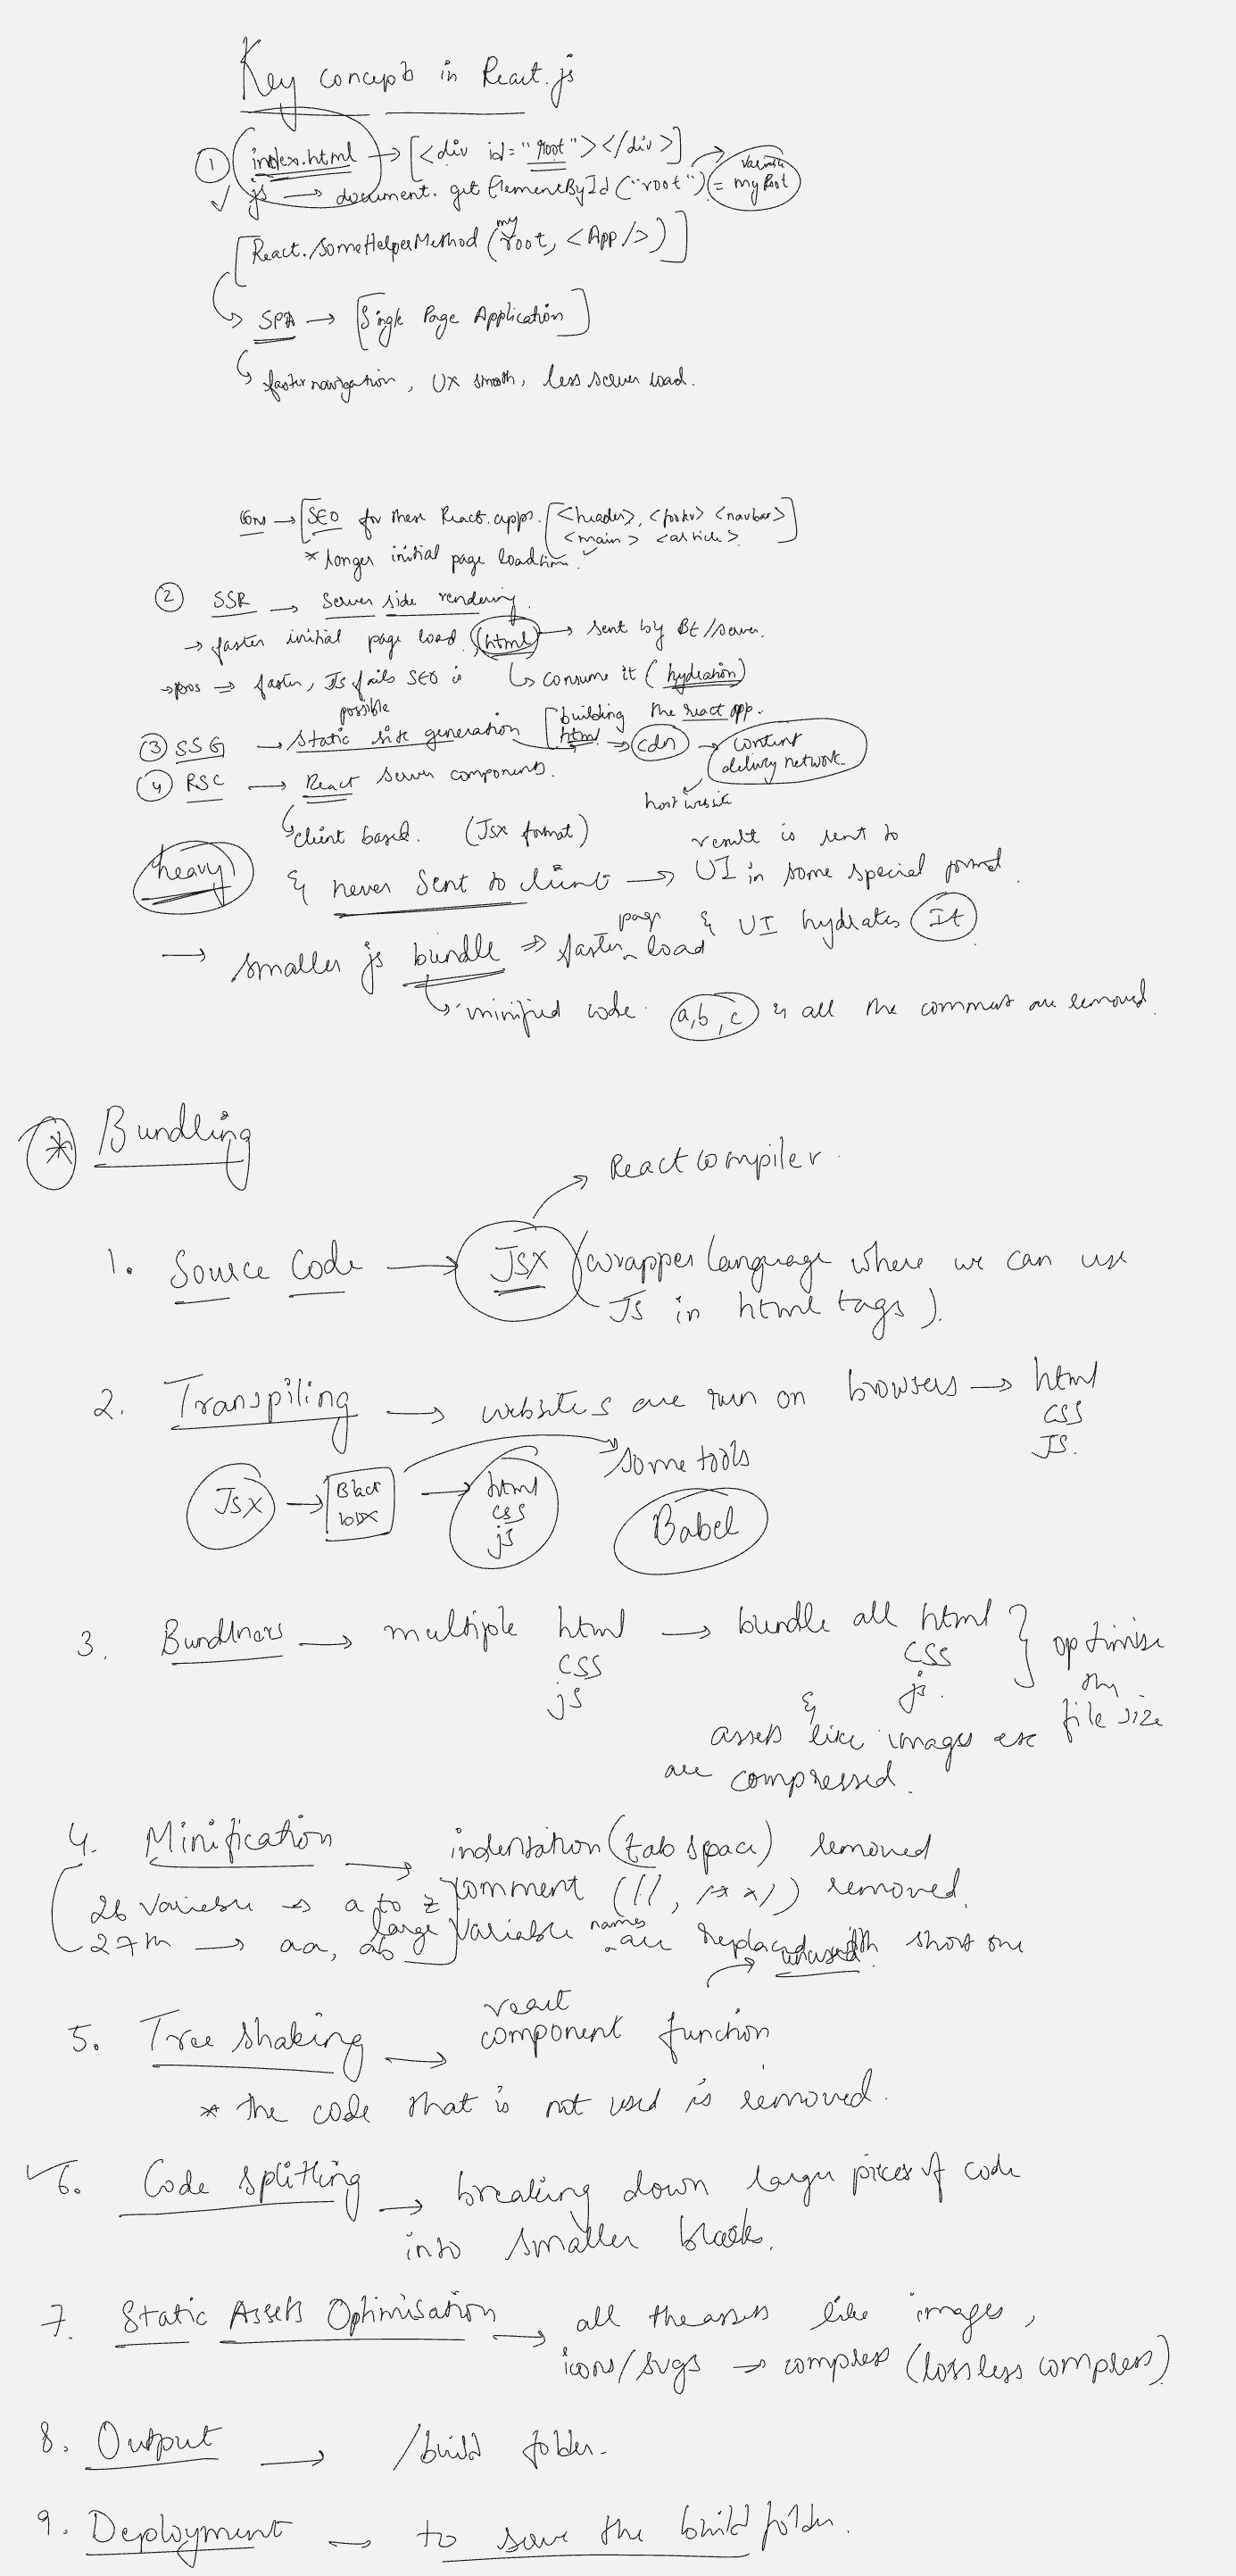 Key concepts in React.js
① index.html → [<div id="root"></div>]
js → document.getElementById("root") = myRoot
variable
[React.SomeHelperMethod (myroot, <App/>)]
SPA → [Single Page Application]
faster navigation, UX smooth, less server load.
Cons → [SEO for these React.apps. [<header>, <footer> <navbar>
<main> <article>]
* longer initial page loadtime.
② SSR → Server side rendering.
→ faster initial page load (html) → sent by BE/server.
→ pros → faster, JS fails SEO is possible
↳ consume it (hydration)
③ SSG → static site generation [building the react app.
html → cdn → content delivery network
host website
④ RSC → React server components.
client based. (JSX format)
heavy
& never sent to client → result is sent to
UI in some special format
& UI hydrates It
→ smaller js bundle ⇒ faster page load
minified code. a, b, c & all the comment are removed
* Bundling
React compiler
1. Source Code → JSX (wrapper language where we can use
JS in html tags).
2. Transpiling → websites are run on browsers → html
css
JS.
JSX → Black box → html css js
some tools
Babel
3. Bundlners → multiple html → bundle all html } optimise
css css
js js.
& file size
assets like images etc
are compressed.
4. Minification → indentation (tab space) removed
comment (//, /* */) removed.
26 variable → a to z
27th → aa, ab
large variable names are replaced with short one
unused
5. Tree Shaking → react component function
* the code that is not used is removed.
6. Code splitting → breaking down larger pieces of code
into smaller
7. Static Assets Optimisation → all the assets like images,
icons/svgs → compress (lossless compress)
8. Output → /build folder.
9. Deployment → to save the build folder.